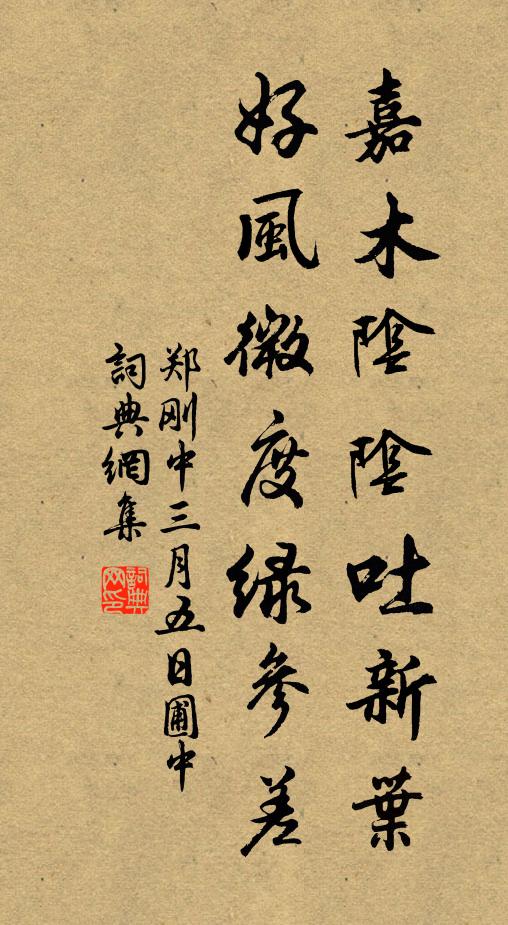 嘉木陰陰吐新葉
好風微度綠參差
郑刚中三月五日圃中
詞典網集
詞典
网印